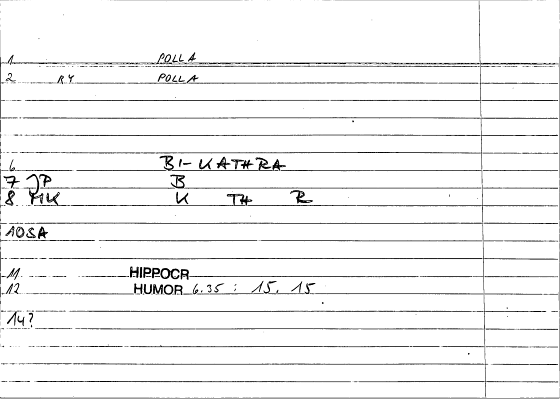 1. POLLA
2 RY POLLA
6 BI-KATHRA
7 JP B
8 MK K TH R
10&A
11 HIPPOCR
12 HUMOR 6.35 : 15. 15
14?